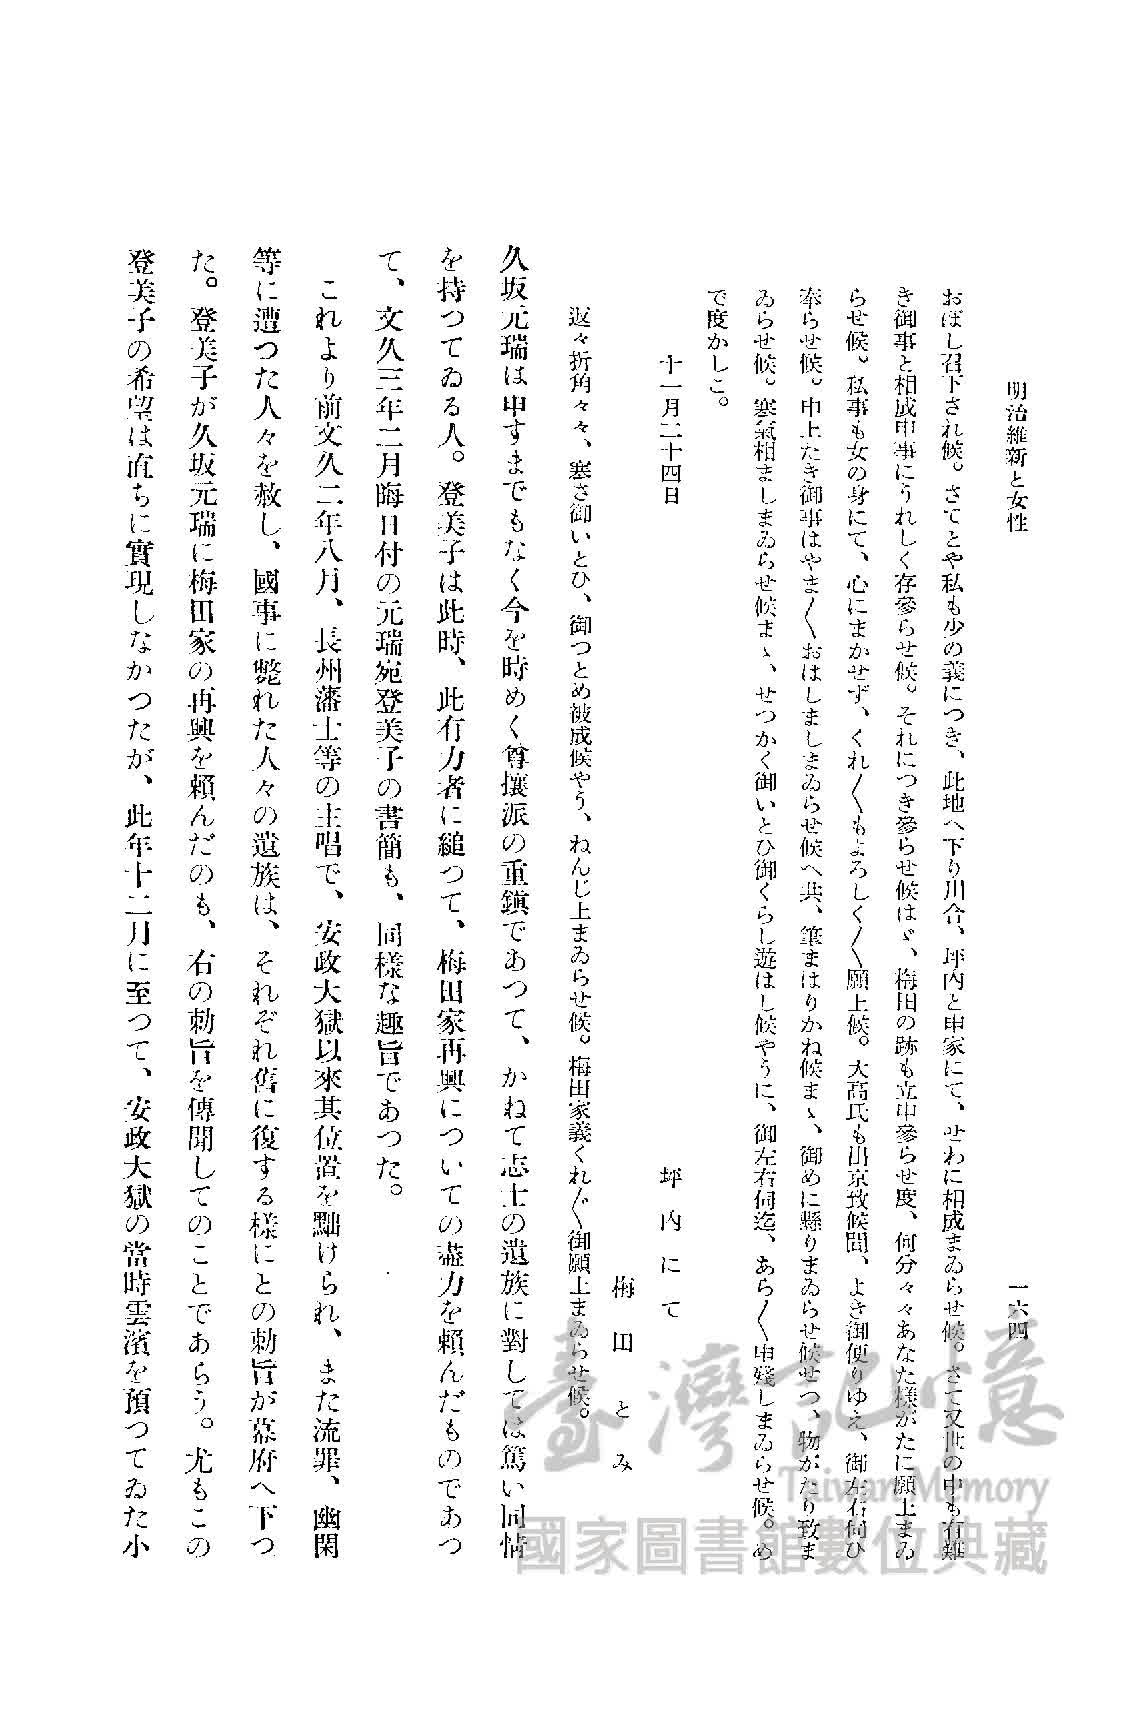 明治維新と女性
一六四
おぼし召下され候。さてとや私も少の義につき、此地へ下り川合、坪内と申家にて、せわに相成まゐらせ候。さて又世の中も有難
き御事と相成申事にうれしく存參らせ候。それにつき參らせ候はゞ、梅田の跡も立申參らせ度、何分々々あなた樣がたに願上まゐ
らせ候。私事も女の身にて、心にまかせず、くれ〱もよろしく〱願上候。大高氏も出京致候間、よき御便りゆえ、御左右伺ひ
奉らせ候。申上たき御事はやま〱おはしましまゐらせ候へ共、筆まはりかね候まゝ、御めに懸りまゐらせ候せつ、物がたり致ま
ゐらせ候。寒氣相ましまゐらせ候まゝ、せつかく御いとひ御くらし遊はし候やうに、御左右伺迄、あら〱申殘しまゐらせ候。め
で度かしこ。
十一月二十四日
坪内にて
梅田とみ
返々折角々々、寒さ御いとひ、御つとめ被成候やう、ねんじ上まゐらせ候。梅田家義くれ〲御願上まゐらせ候。
久坂元瑞は申すまでもなく今を時めく尊攘派の重鎭であつて、かねて志士の遺族に對しては篤い同情
を持つてゐる人。登美子は此時、此有力者に縋つて、梅田家再興についての盡力を賴んだものであつ
て、文久三年二月晦日付の元瑞宛登美子の書簡も、同樣な趣旨であつた。
これより前文久二年八月、長州藩士等の主唱で、安政大獄以來其位置を黜けられ、また流罪、幽閑
等に遭つた人々を赦し、國事に斃れた人々の遺族は、それぞれ舊に復する樣にとの勅旨が幕府へ下つ
た。登美子が久坂元瑞に梅田家の再興を賴んだのも、右の勅旨を傳聞してのことであらう。尤もこの
登美子の希望は直ちに實現しなかつたが、此年十二月に至つて、安政大獄の當時雲濱を預つてゐた小
臺灣記憶
TaiwanMemory
國家圖書館數位典藏